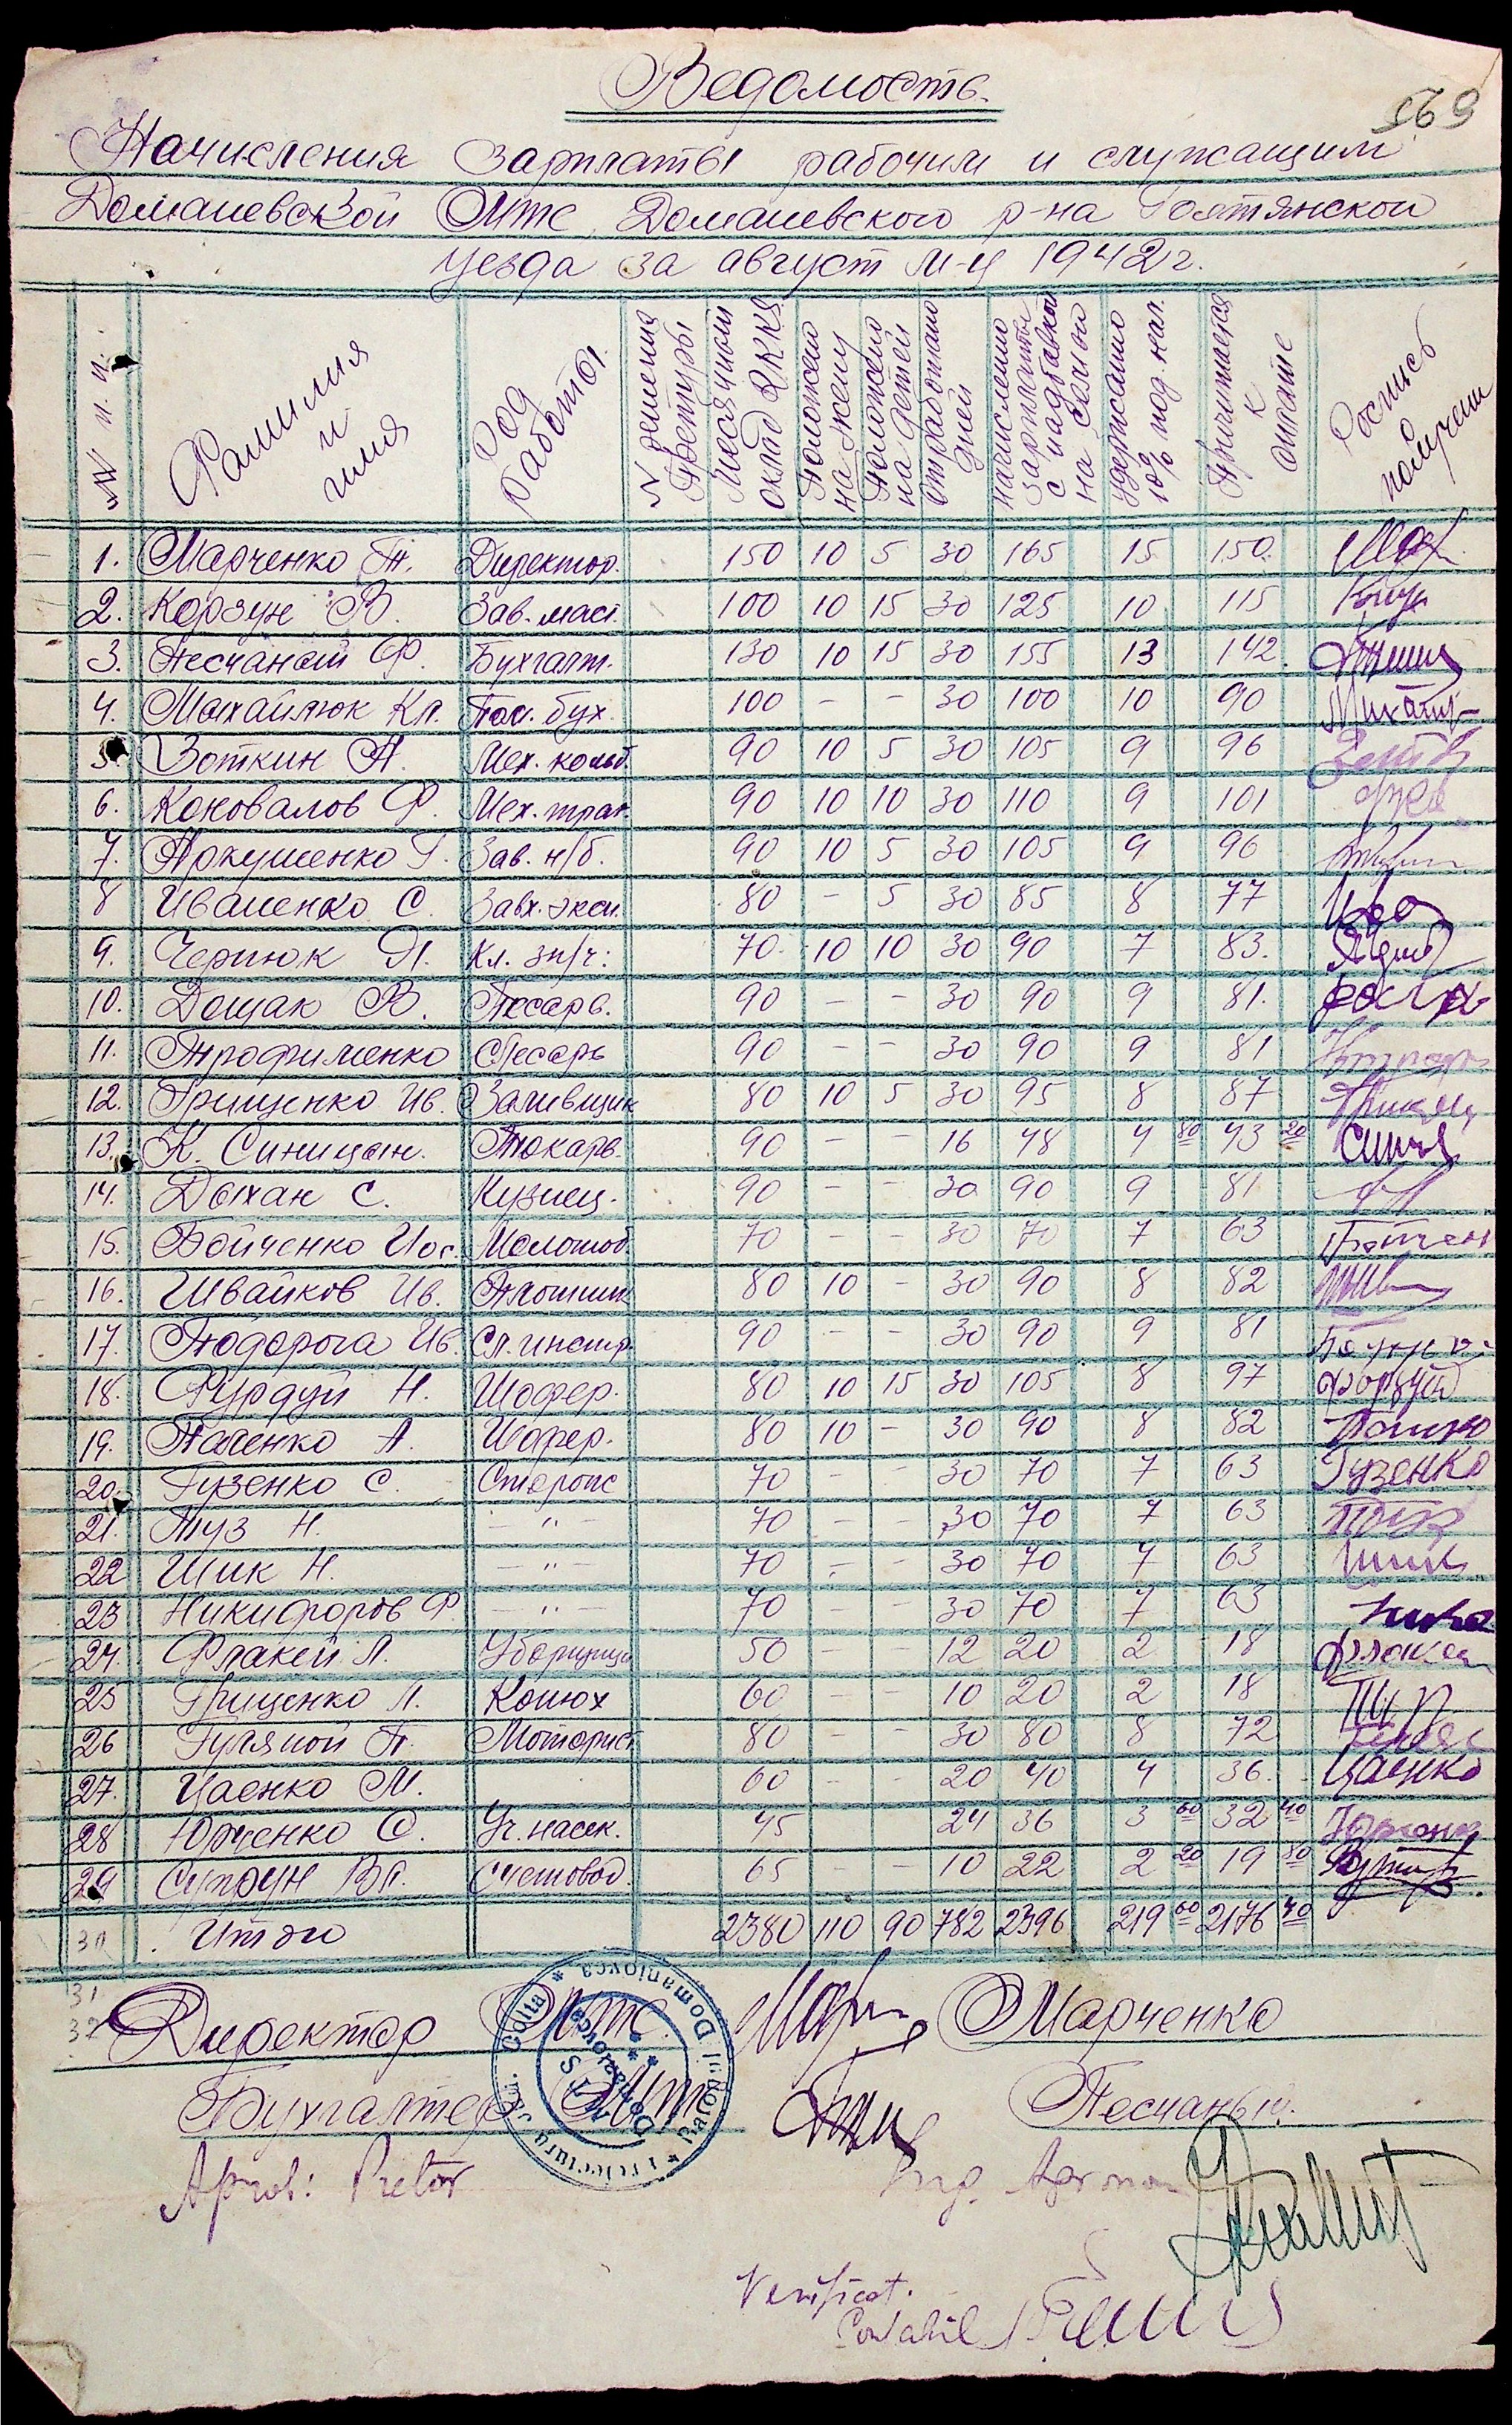 Ведомость
569
Начисления зарплаты рабочим и служащим
Доманевской Мтс Доманевского р-на Голтянской
уезда за август м-ц 1942 г.
№ п. п. Фамилия и имя Род работы № решения Претуры Месячный оклад RKKS Положено на жену Положено на детей отработано дней начислено зарплаты с надбавкой на семью удержано 10% под. нал. Причитается к оплате Роспись получени
1. Марченко П. Директор. 150 10 5 30 165 15 150.
2. Корзун В. Зав. маст. 100 10 15 30 125 10 115
3. Песчаный Ф. Бухгалт. 130 10 15 30 155 13 142.
4. Михайлюк Кл. Пом. бух. 100 - - 30 100 10 90
5. Зоткин А. Мех. комб. 90 10 5 30 105 9 96
6. Коновалов Ф. Мех. трак. 90 10 10 30 110 9 101
7. Яркушенко Г. Зав. н/б. 90 10 5 30 105 9 96
8 Иваненко С. Завх. экон. 80 - 5 30 85 8 77
9. Чернюк Д. Кл. зп/ч: 70 10 10 30 90 7 83.
10. Дощак В. Слесарь. 90 - - 30 90 9 81.
11. Трофименко Слесарь 90 - - 30 90 9 81
12. Грищенко Ив. Заливщик 80 10 5 30 95 8 87
13. К. Синицын. Токарь. 90 - - 16 48 4 80 43 20
14. Дыхан С. Кузнец. 90 - - 30 90 9 81
15. Бойченко Иос. Молотоб. 70 - - 30 70 7 63
16. Швайков Ив. Плотник 80 10 - 30 90 8 82
17. Подорога Ив. Сл. инстр. 90 - - 30 90 9 81
18. Фурдуй Н. Шофер. 80 10 15 30 105 8 97
19. Паченко А. Шофер. 80 10 - 30 90 8 82
20. Гузенко С. Сторож 70 - - 30 70 7 63 Гузенко
21. Туз Н. - " - 70 - - 30 70 7 63
22 Шик Н. - " - 70 - - 30 70 7 63 Шик
23 Никифоров Ф. - " - 70 - - 30 70 7 63
24. Флакей Л. Уборщица 50 - - 12 20 2 18
25 Грищенко Л. Конюх 60 - - 10 20 2 18
26 Гуляной П. Моторист 80 - - 30 80 8 72
27. Цаенко М. 60 - - 20 40 4 36. Цаенко
28 Юрченко О. Уч. насек. 45 24 36 3 60 32 40
29 Супрун Вл. Счетовод. 65 - - 10 22 2 20 19 80
30 Итого 2380 110 90 782 2396 219 60 2176 40
31
32
Директор Мтс. Марченко
Бухгалтер Мтс Песчаный.
Prefectura Jud. Golta * Raionul Domaniovca *
S.M.T. Domaniovca
Aprob: Pretor Ing. Agronom
Verificat.
Contabil